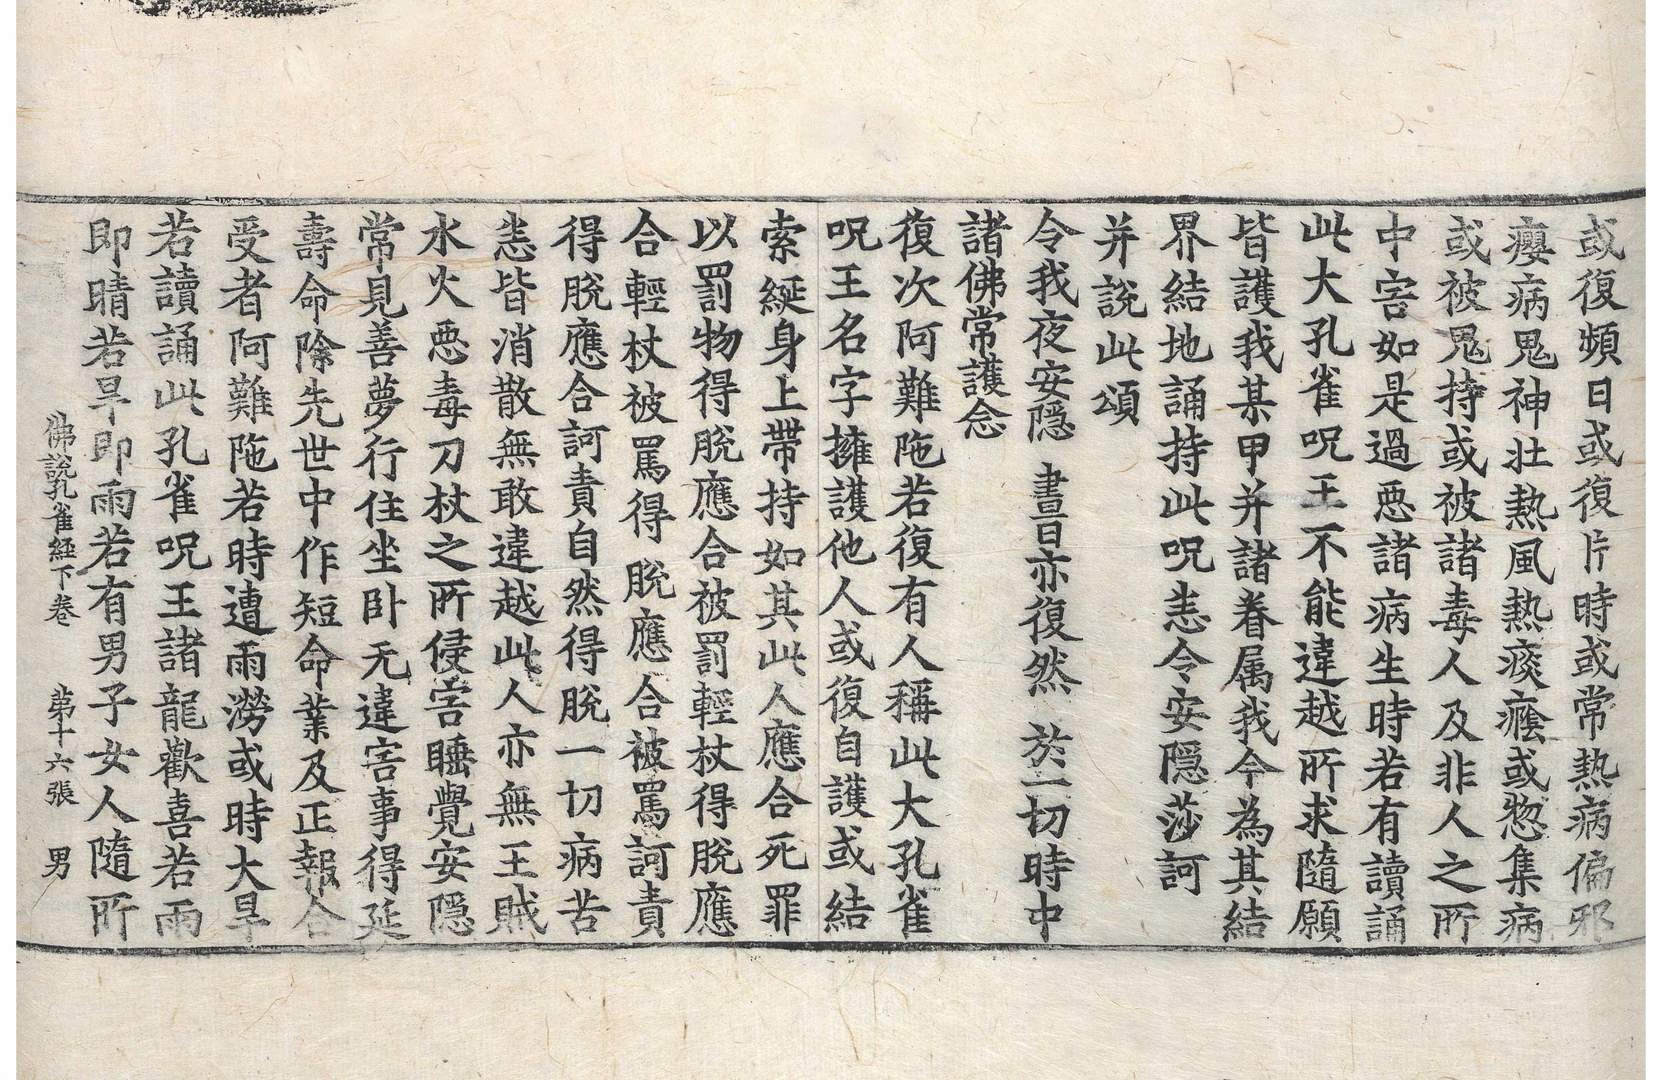 或復頻日或復片時或常熱病偏邪
癭病鬼神壯熱風熱痰癊或惣集病
或被鬼持或被諸毒人及非人之所
中害如是過惡諸病生時若有讀誦
此大孔雀呪王不能違越所求隨願
皆護我某甲并諸眷属我今為其結
界結地誦持此呪悉令安隱莎訶
并說此頌
令我夜安隱　晝日亦復然　於一切時中
諸佛常護念
復次阿難陁若復有人稱此大孔雀
呪王名字擁護他人或復自護或結
索綖身上帶持如其此人應合死罪
以罰物得脫應合被罰輕杖得脫應
合輕杖被罵得脫應合被罵訶責
得脫應合訶責自然得脫一切病苦
悉皆消散無敢違越此人亦無王賊
水火惡毒刀杖之所侵害睡覺安隱
常見善夢行住坐卧无違害事得延
壽命除先世中作短命業及正報合
受者阿難陁若時遭雨澇或時大旱
若讀誦此孔雀呪王諸龍歡喜若雨
即晴若旱即雨若有男子女人隨所
佛說孔雀経下卷　第十六張　男